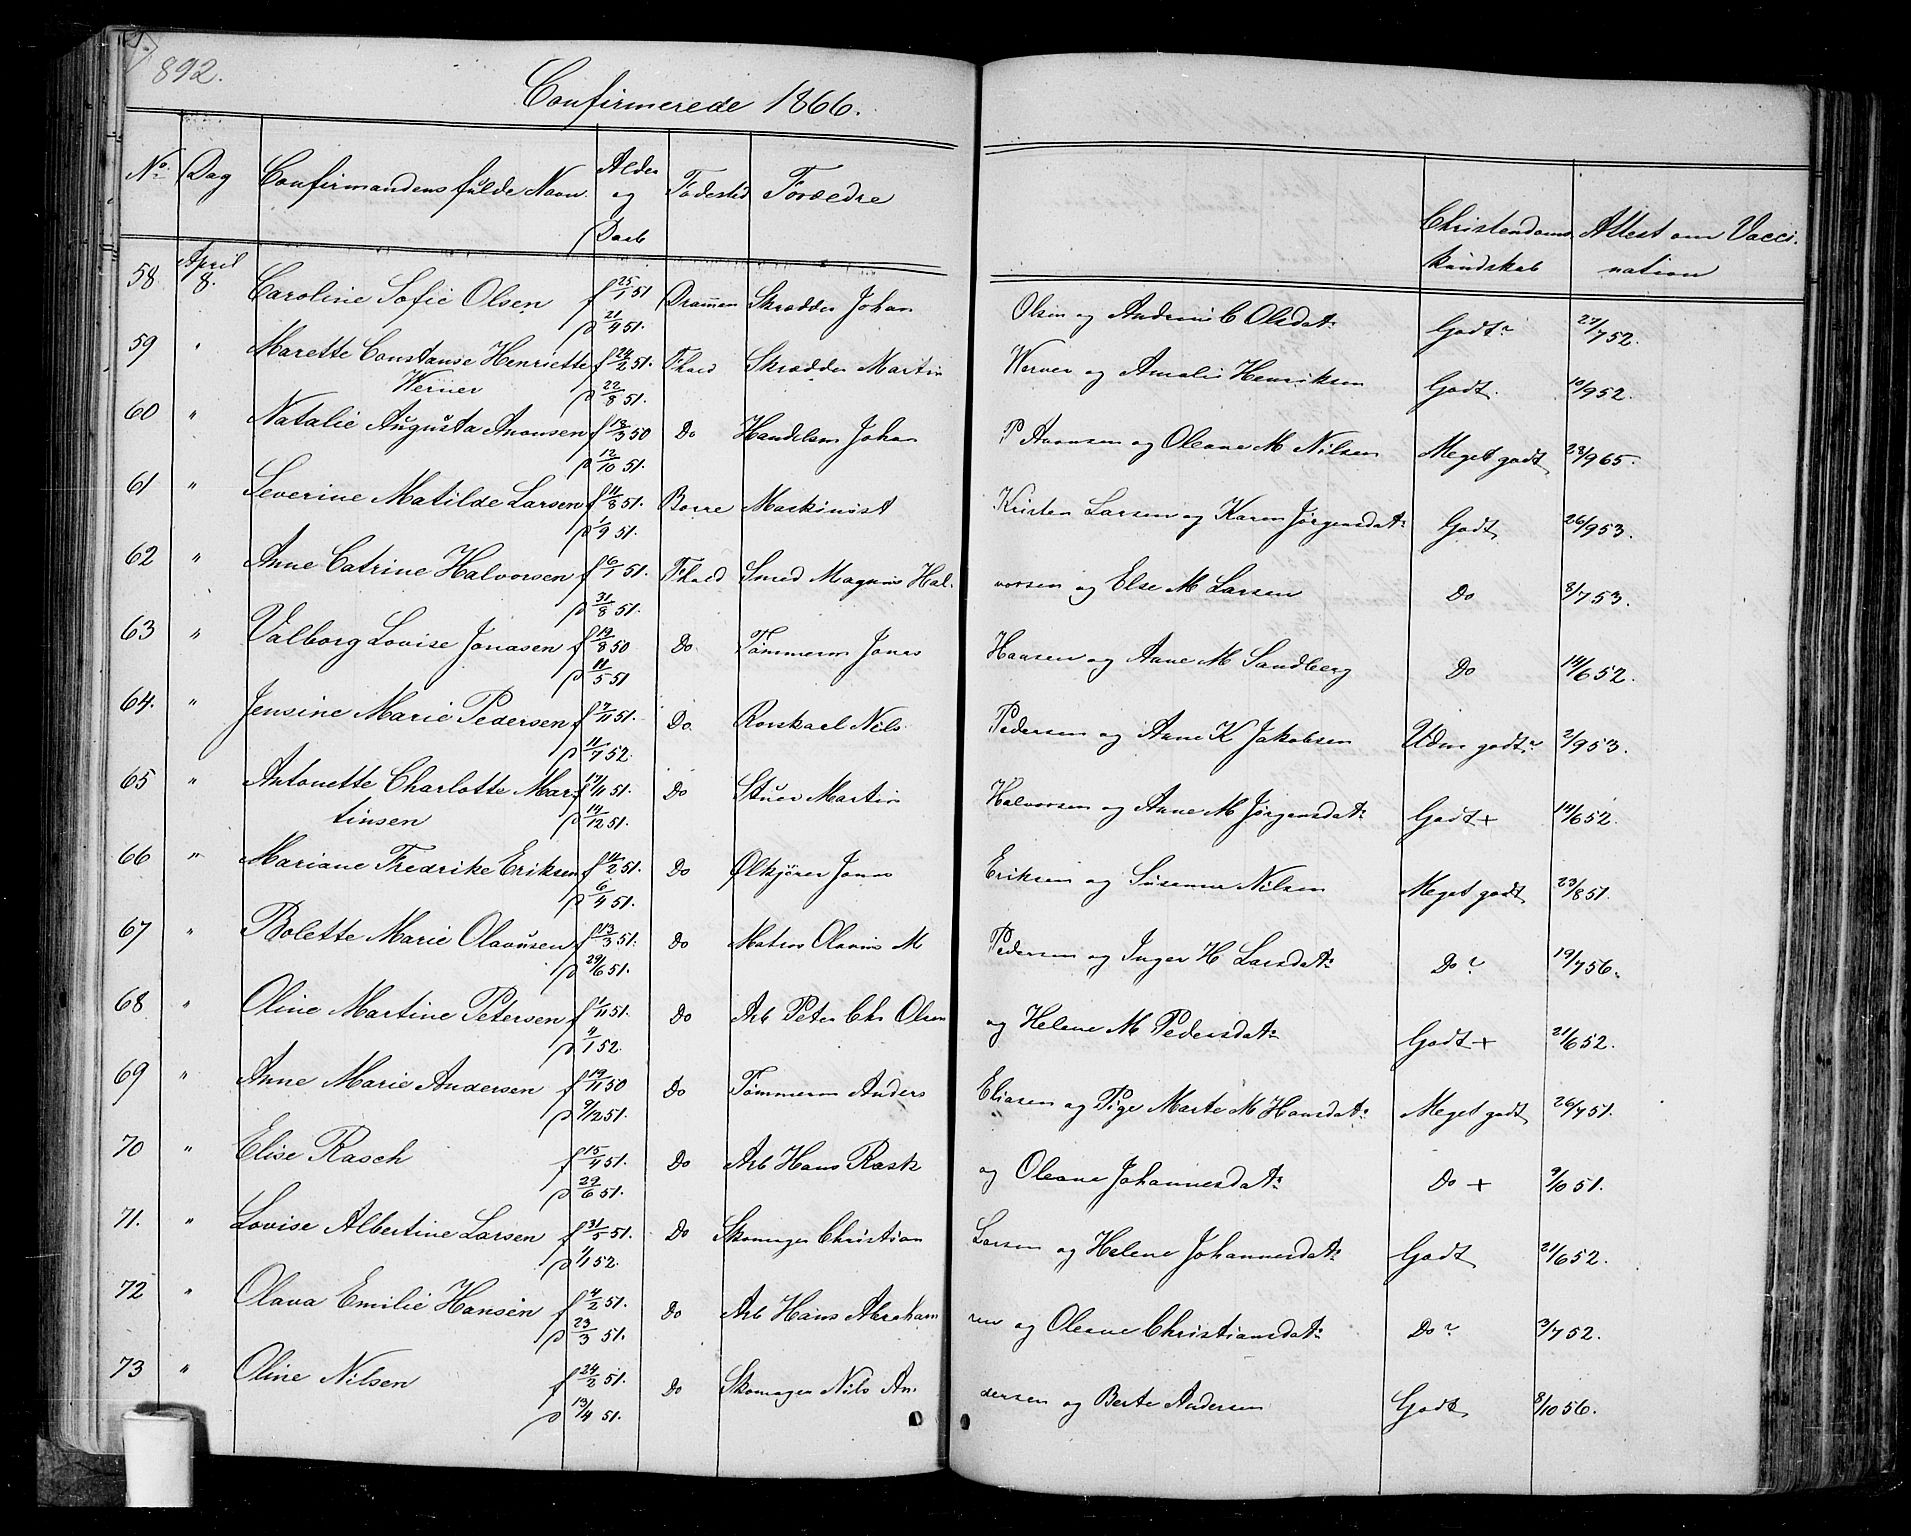 892.
Confirmerede 1866.
No. Dag Confirmandens fulde Navn. Alder og Daab Fødested Forældre Christendoms Kundskab Attest om Vaccination
58 April 8. Caroline Sofie Olsen f 25/1 51 Drammen Skrædder Johan Olsen og Andrine C Olsdat: Godt 27/7 52.
d 21/4 51.
59 " Marette Constanse Henriette f 24/2 51. Fhald Skrædder Martin Werner og Amalie Henriksen Godt. 10/9 52.
Werner d 22/8 51.
60 " Natalie Augusta Anonsen f 18/3 50 Do Handelsm Johan P Aanonsen og Oleane M Nilsen Meget godt 28/9 65.
d 12/10 51.
61 " Severine Matilde Larsen f 11/8 51. Borre Maskinist Kristen Larsen og Karen Jørgensdat: Godt 26/9 53.
d 1/9 51.
62 " Anne Catrine Halvorsen f 6/1 51. Fhald Smed Magnus Halvorsen og Else M Larsen Do 8/7 53.
d 31/8 51.
63 " Valborg Lovise Jonasen f 19/8 50 Do Tømmerm Jonas Hansen og Anne M Sandberg Do 14/6 52.
d 11/5 51
64. " Jensine Marie Pedersen f 7/11 51. Do. Rorskarl Nils Pedersen og Anne K Jakobsen Udm godt 2/9 53.
d 11/7 52.
65 " Antonette Charlotte Mar f 17/11 51. Do Stuer Martin Halvorsen og Anne M Jørgensdat: Godt + 14/6 52.
tinsen d 14/12 51.
66 " Mariane Fredrike Eriksen f 11/2 51. Do Ølkjører Jonas Eriksen og Susanne Nilsen Meget godt 23/8 51.
d 6/4 51.
67 " Bolette Marie Olausen f 13/3 51. Do Matros Olavus M Pedersen og Inger H Larsdat: Do 19/7 56.
d 29/6 51.
68 " Oline Martine Petersen f 1/11 51. Do Arb Peter Chr Olsen og Helene M Pedersdat: Godt + 21/6 52.
d 4/1 52.
69 " Anne Marie Andersen f 19/11 50 Do Tømmerm Anders Eliasen og Pige Marte M Hansdat: Meget godt 26/7 51.
d 9/12 51.
70 " Elise Rasch f 15/4 51. Do Arb Hans Rask og Oleane Johannesdat: Do + 9/10 51.
d 22/6 51.
71. " Lovise Albertine Larsen f 31/5 51. Do Skomager Christian Larsen og Helene Johannesdat: Godt 21/6 52.
d 1/1 52.
72 " Olava Emilie Hansen f 4/2 51. Do Arb Hans Abrahamsen og Oleane Christiansdat: Do 3/7 52.
d 23/3 51.
73 " Oline Nilsen f 24/2 51. Do Skomager Nils Andersen og Berte Andersen Godt 8/10 56.
d 13/4 51.